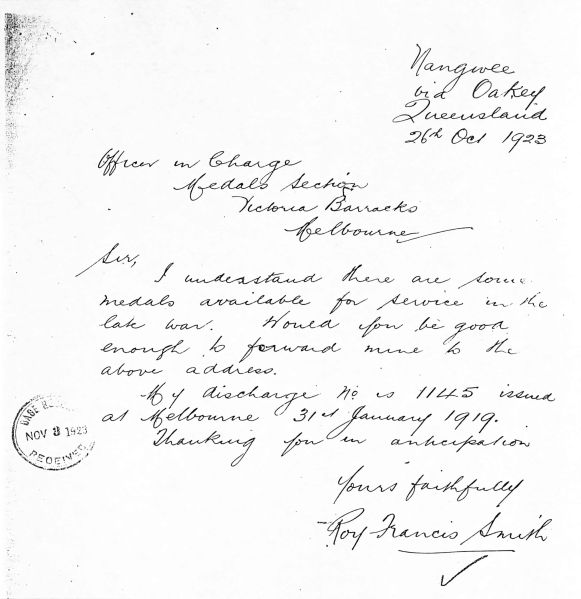 Nangwee
via Oakey
Queensland
26th Oct 1923
Officer in Charge
Medals Section
Victoria Barracks
Melbourne
Sir,
I understand there are some
medals available for service in the
late war. Would you be good
enough to forward mine to the
above address.
My discharge No is 1145 issued
at Melbourne 31st January 1919.
Thanking you in anticipation
Yours faithfully
Roy Francis Smith
BASE
NOV 3 1923
RECEIVED